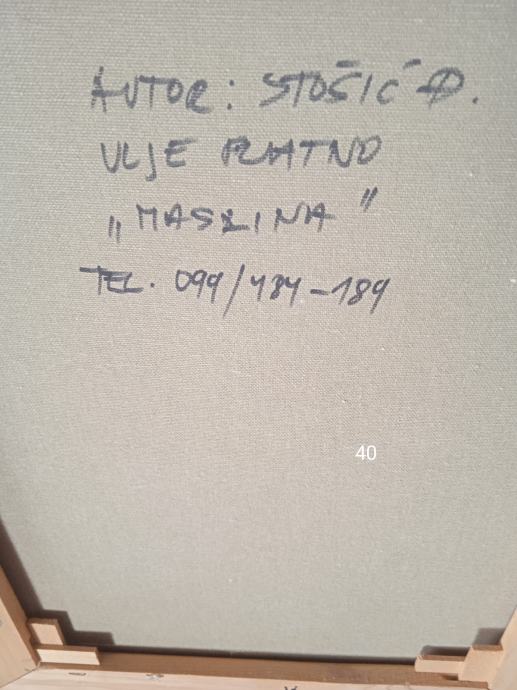 AUTOR: STOŠIĆ Đ.
ULJE PLATNO
„MASLINA"
TEL. 099/484-189
40